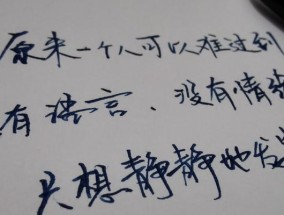 原来一个人可以难过到
有语言、没有情绪
只想静静地发